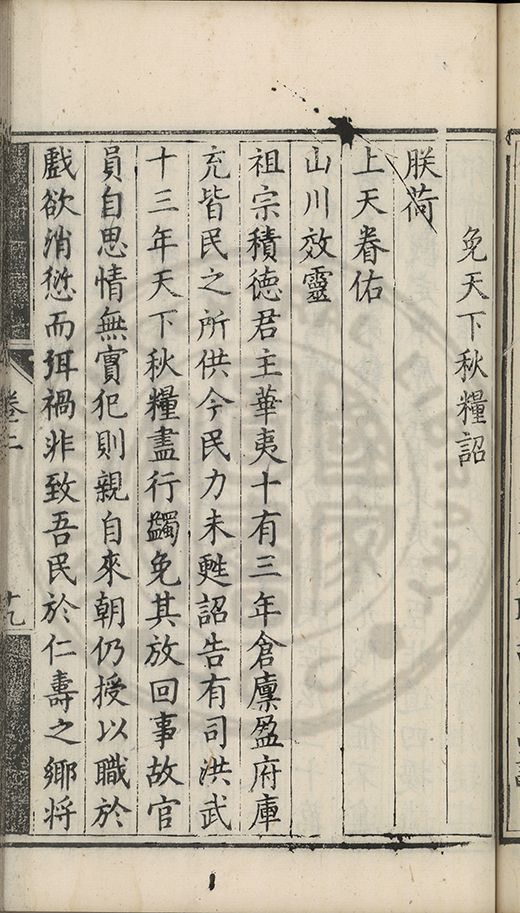 免天下秋糧詔
朕荷
上天眷佑
山川效靈
祖宗積德君主華夷十有三年倉廩盈府庫
充皆民之所供今民力未甦詔告有司洪武
十三年天下秋糧盡行蠲免其放回事故官
員自思情無實犯則親自來朝仍授以職於
戲欲消愆而弭禍非致吾民於仁壽之鄉将
卷二
十九